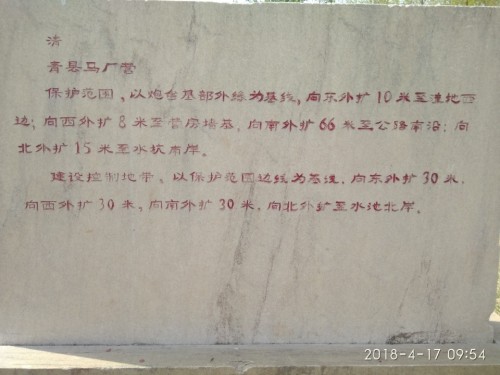 清
青县马厂营
保护范围、以炮台基部外缘为基线,向东外扩10米至洼地西
边;向西外扩8米至营房墙基,向南外扩66米至公路南沿;向
北外扩15米至水坑南岸。
建设控制地带、以保护范围边线为基线,向东外扩30米,
向西外扩30米,向南外扩30米,向北外扩至水池北岸。
2018-4-17 09:54